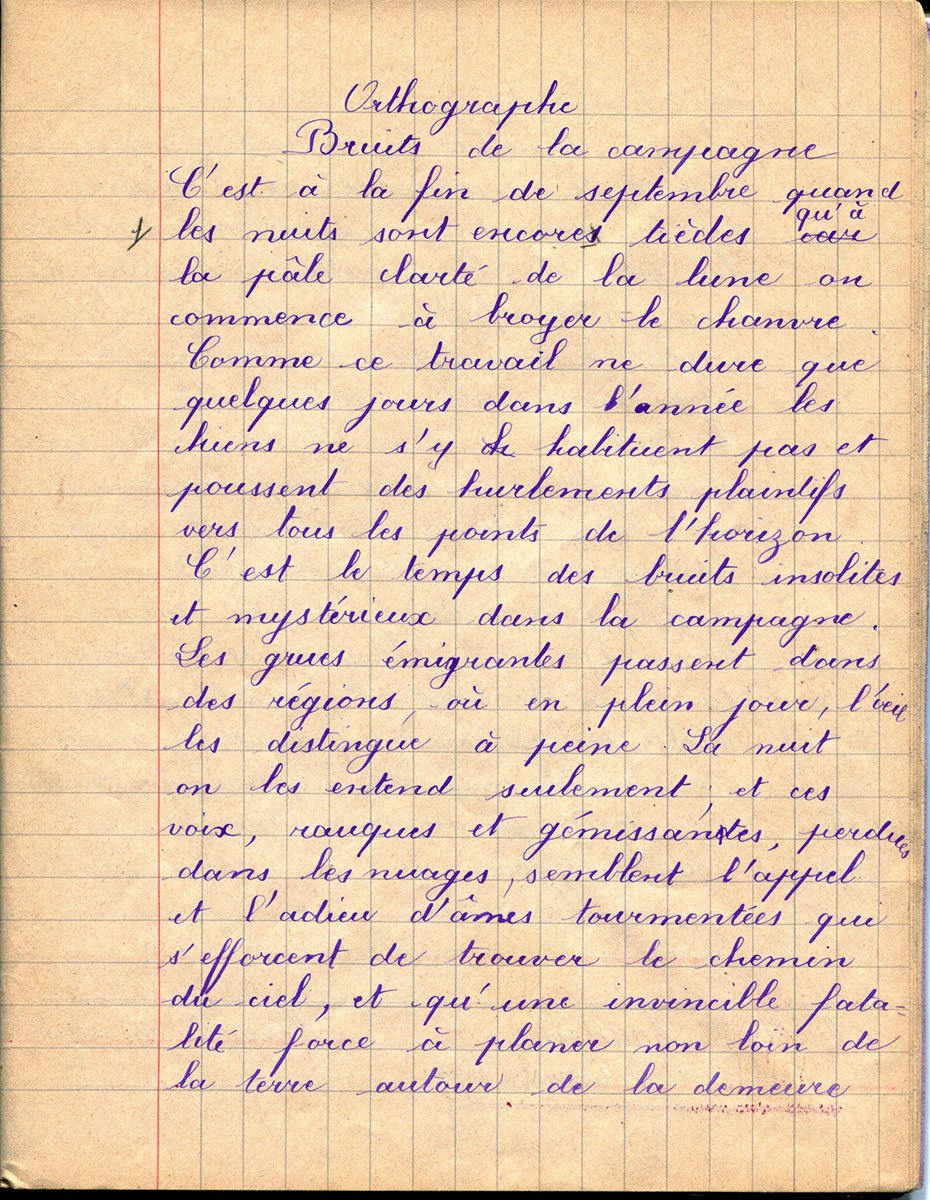 Orthographe
Bruits de la campagne
C'est à la fin de septembre quand
les nuits sont encores tièdes qu'à
la pâle clarté de la lune on
commence à broyer le chanvre.
Comme ce travail ne dure que
quelques jours dans l'année les
chiens ne s'y habituent pas et
poussent des hurlements plaintifs
vers tous les points de l'horizon.
C'est le temps des bruits insolites
et mystérieux dans la campagne.
Les grues émigrantes passent dans
des régions, où en plein jour, l'œil
les distingue à peine. La nuit
on les entend seulement ; et ces
voix, rauques et gémissantes, perdues
dans les nuages, semblent l'appel
et l'adieu d'âmes tourmentées qui
s'efforcent de trouver le chemin
du ciel, et qu'une invincible fata=
lité force à planer non loin de
la terre autour de la demeure